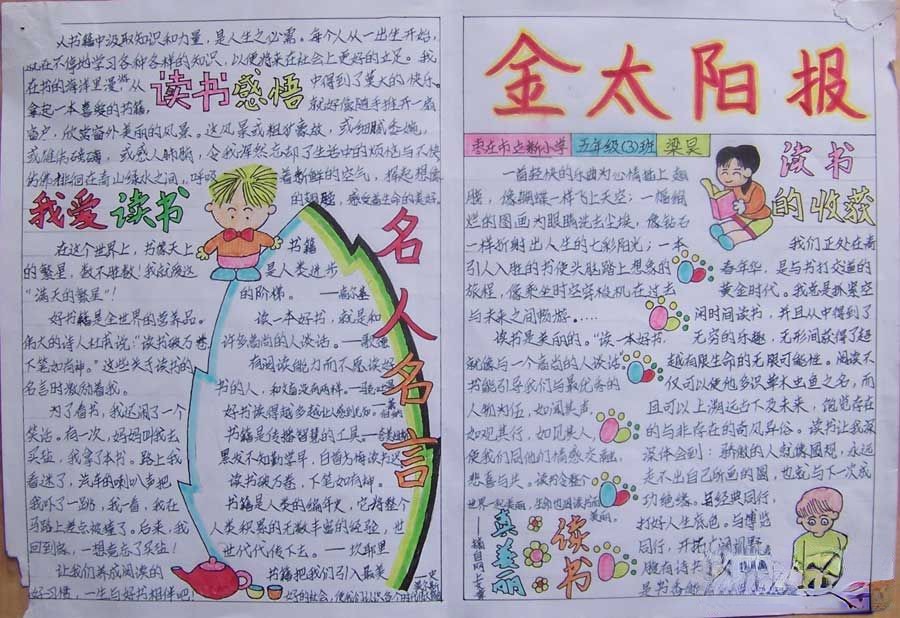 从书籍中汲取知识和力量,是人生之必需。每个人从一出生开始,
就在不停地学习各种各样的知识,以便将来在社会上更好的立足。我
在书的海洋里漫
从
中得到了莫大的快乐。
读书感悟
拿起一本喜爱的书籍
就好像随手推开一扇
窗户,欣赏窗外美丽的风景。这风景或粗犷豪放,或细腻委婉,
令我浑然忘却了生活中的烦恼与不快
徘徊在青山绿水之间,呼吸
着新鲜的空气,
感受着生命的美好。
我爱读书
在这个世界上,书像天上
的繁星,数不胜数!我就疯这
“满天的繁星”!
好书籍是全世界的营养品。
伟大的诗人杜甫说“读书破万卷
下笔如有神。”这些关于读书的
名言时激励着我。
为了看书,我还闹了一个
笑话。有一次,妈妈叫我去
买盐,我拿了本书。路上我
看迷了,汽车的喇叭声把
我吓了一跳,我一看,我在
马路上差点被撞了。后来,我
回到家,一想竟忘了买盐!
让我们养成阅读的
好习惯,一生与好书相伴吧!
名人名言
书籍
是人类进步
的阶梯。——高尔基
读一本好书,就是和
许多高尚的人谈话。——歌德
有阅读能力而不愿读好
书的人,和文盲没有两样。
好书读得越多越让人感到无知。
书籍是传播智慧的工具。
黑发不知勤学早,白首方悔读书迟
读书破万卷,下笔如有神。
书籍是人类的编年史,它将整个
人类积累的无数丰富的经验,世
世代代传下去。——坎耶里
书籍把我们引入最美
好的社会,使我们认识各个时代
金太阳报
枣庄市立新小学 五年级(3)班 梁昊
一首轻快的乐曲为心情插上翅
膀,像蝴蝶一样飞上天空;一幅绚
烂的图画为眼睛洗去尘埃,像钻石
一样折射出人生的七彩阳光;一本
引人入胜的书使头脑踏上想象的
旅程,像乘坐时空穿梭机在过去
与未来之间畅游。……
读书是美丽的。“读一本好书,
就像与一个高尚的人谈话
书能引导我们与最优秀的
人物为伍,如闻其声,
如观其行,如见其人,
使我们同他们情感交融。
悲喜与共。读书会整个
美丽。
读书真美丽
——摘自网上文章
读书的收获
我们正处在青
春年华,是与书打交道的
黄金时代。我总是抓紧空
闲时间读书,并且从中得到了
无穷的乐趣,无形间获得了超
越有限生命的无限可能性。阅读不
仅可以使他多识草木虫鱼之名,而
且可以上溯远古下及未来,饱览存在
的与非存在的奇风异俗。读书让我深
深体会到:骄傲的人就像圆规,永远
走不出自己所画的圈,也就与下一次成
功绝缘。与经典同行,
打好人生底色。与博览
同行,开
拥有诗书
是书香